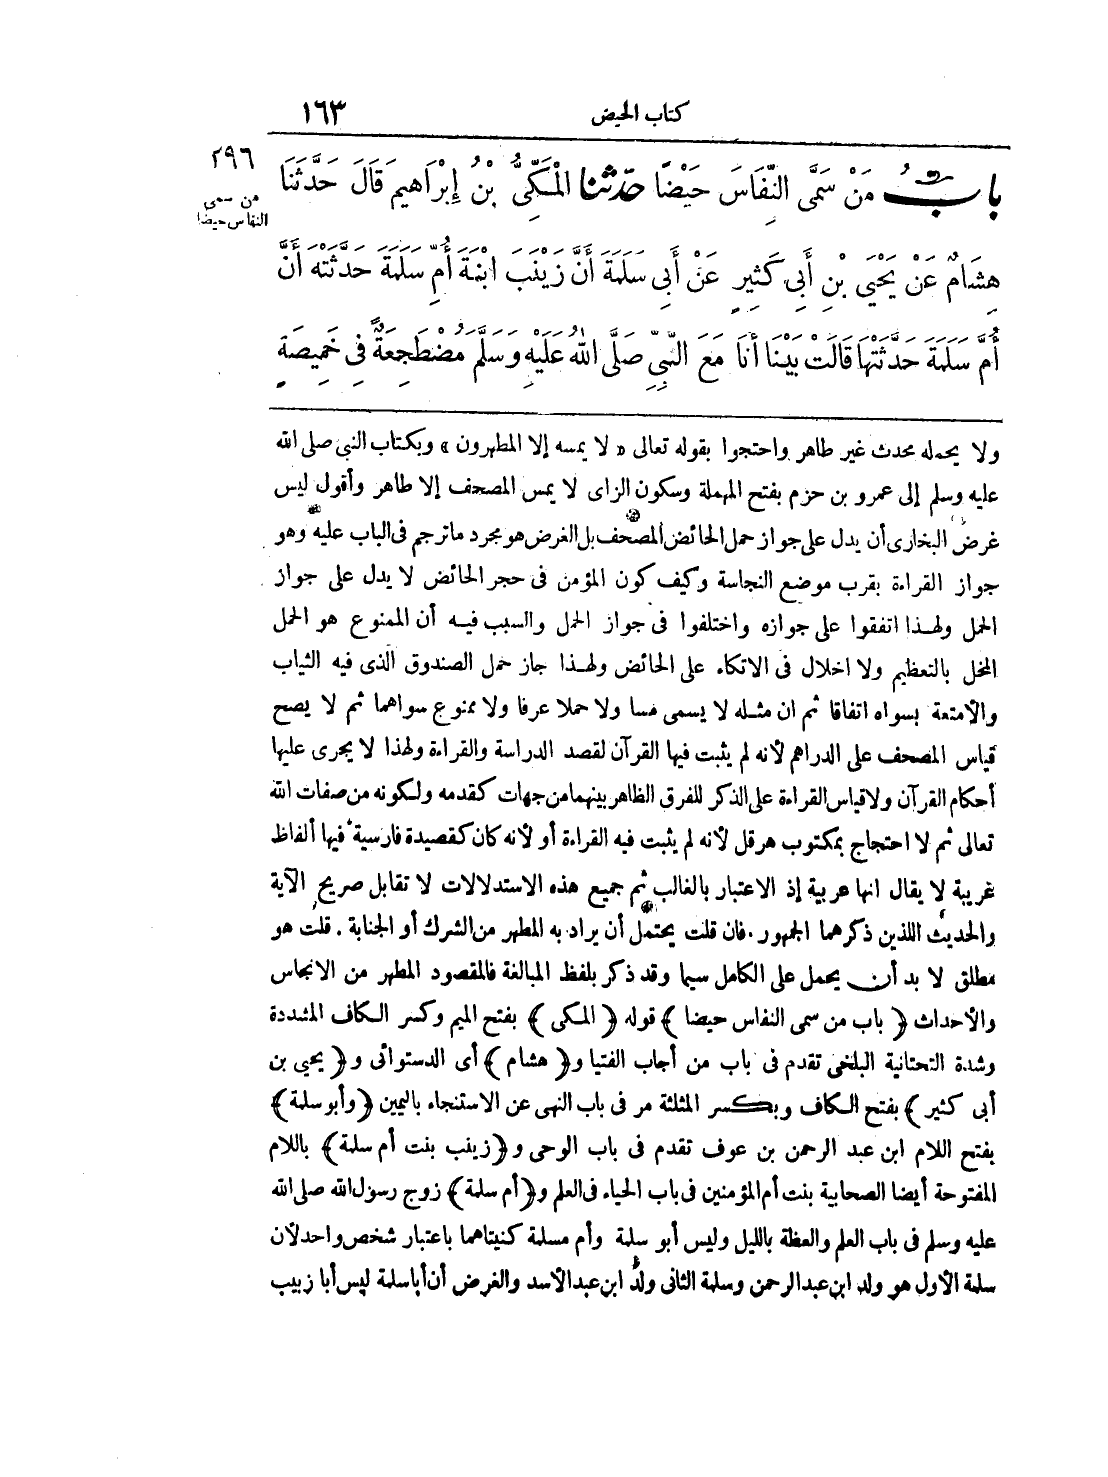 كتاب الحيض ١٦٣
٢٩٦
من سمى
النفاس حيضا
بابُ مَنْ سَمَّى النِّفَاسَ حَيْضًا حدّثنا الْمَكِّىُّ بْنُ إِبْرَاهِيمَ قَالَ حَدَّثَنَا
هِشَامٌ عَنْ يَحْيَى بْنِ أَبِى كَثِيرٍ عَنْ أَبِى سَلَمَةَ أَنَّ زَيْنَبَ ابْنَةَ أُمِّ سَلَمَةَ حَدَّثَتْهُ أَنَّ
أُمَّ سَلَمَةَ حَدَّثَتْهَا قَالَتْ بَيْنَا أَنَا مَعَ النَّبِىِّ صَلَّى اللهُ عَلَيْهِ وَسَلَّمَ مُضْطَجِعَةً فِى خَمِيصَةٍ
ولا يحمله محدث غير طاهر واحتجوا بقوله تعالى «لا يمسه إلا المطهرون» وبكتاب النبى صلى الله
عليه وسلم إلى عمرو بن حزم بفتح المهملة وسكون الزاى لا يمس المصحف إلا طاهر وأقول ليس
غرض البخارى أن يدل على جواز حمل الحائض المصحف بل الغرض هو مجرد ما ترجم فى الباب عليه وهو
جواز القراءة بقرب موضع النجاسة وكيف كون المؤمن فى حجر الحائض لا يدل على جواز
الحمل ولهذا اتفقوا على جوازه واختلفوا فى جواز الحمل والسبب فيه أن الممنوع هو الحمل
المخل بالتعظيم ولا اخلال فى الاتكاء على الحائض ولهذا جاز حمل الصندوق الذى فيه الثياب
والأمتعة بسواه اتفاقا ثم ان مثله لا يسمى مسا ولا حملا عرفا ولا ممنوع سواهما ثم لا يصح
قياس المصحف على الدراهم لأنه لم يثبت فيها القرآن لقصد الدراسة والقراءة ولهذا لا يجرى عليها
أحكام القرآن ولا قياس القراءة على الذكر للفرق الظاهر بينهما من جهات كقدمه ولكونه من صفات الله
تعالى ثم لا احتجاج بمكتوب هرقل لأنه لم يثبت فيه القراءة أو لأنه كان كقصيدة فارسية فيها ألفاظ
غريبة لا يقال انها عربية إذ الاعتبار بالغالب ثم جميع هذه الاستدلالات لا تقابل صريح الآية
والحديث اللذين ذكرهما الجمهور. فان قلت يحتمل أن يراد به المطهر من الشرك أو الجنابة. قلت هو
مطلق لا بد أن يحمل على الكامل سيما وقد ذكر بلفظ المبالغة فالمقصود المطهر من الانجاس
والأحداث (باب من سمى النفاس حيضا) قوله (المكى) بفتح الميم وكسر الكاف المشددة
وشدة التحتانية البلخى تقدم فى باب من أجاب الفتيا و(هشام) أى الدستوائى و(يحيى بن
أبى كثير) بفتح الكاف وبكسر المثلثة مر فى باب النهى عن الاستنجاء باليمين (وأبو سلمة)
بفتح اللام ابن عبد الرحمن بن عوف تقدم فى باب الوحى و(زينب بنت أم سلمة) باللام
المفتوحة أيضا الصحابية بنت أم المؤمنين فى باب الحياء فى العلم و(أم سلمة) زوج رسول الله صلى الله
عليه وسلم فى باب العلم والعظة بالليل وليس أبو سلمة وأم مسلمة كنيتاهما باعتبار شخص واحد لأن
سلمة الأول هو ولد ابن عبد الرحمن وسلمة الثانى ولد ابن عبد الأسد والغرض أن أبا سلمة ليس أبا زبيب